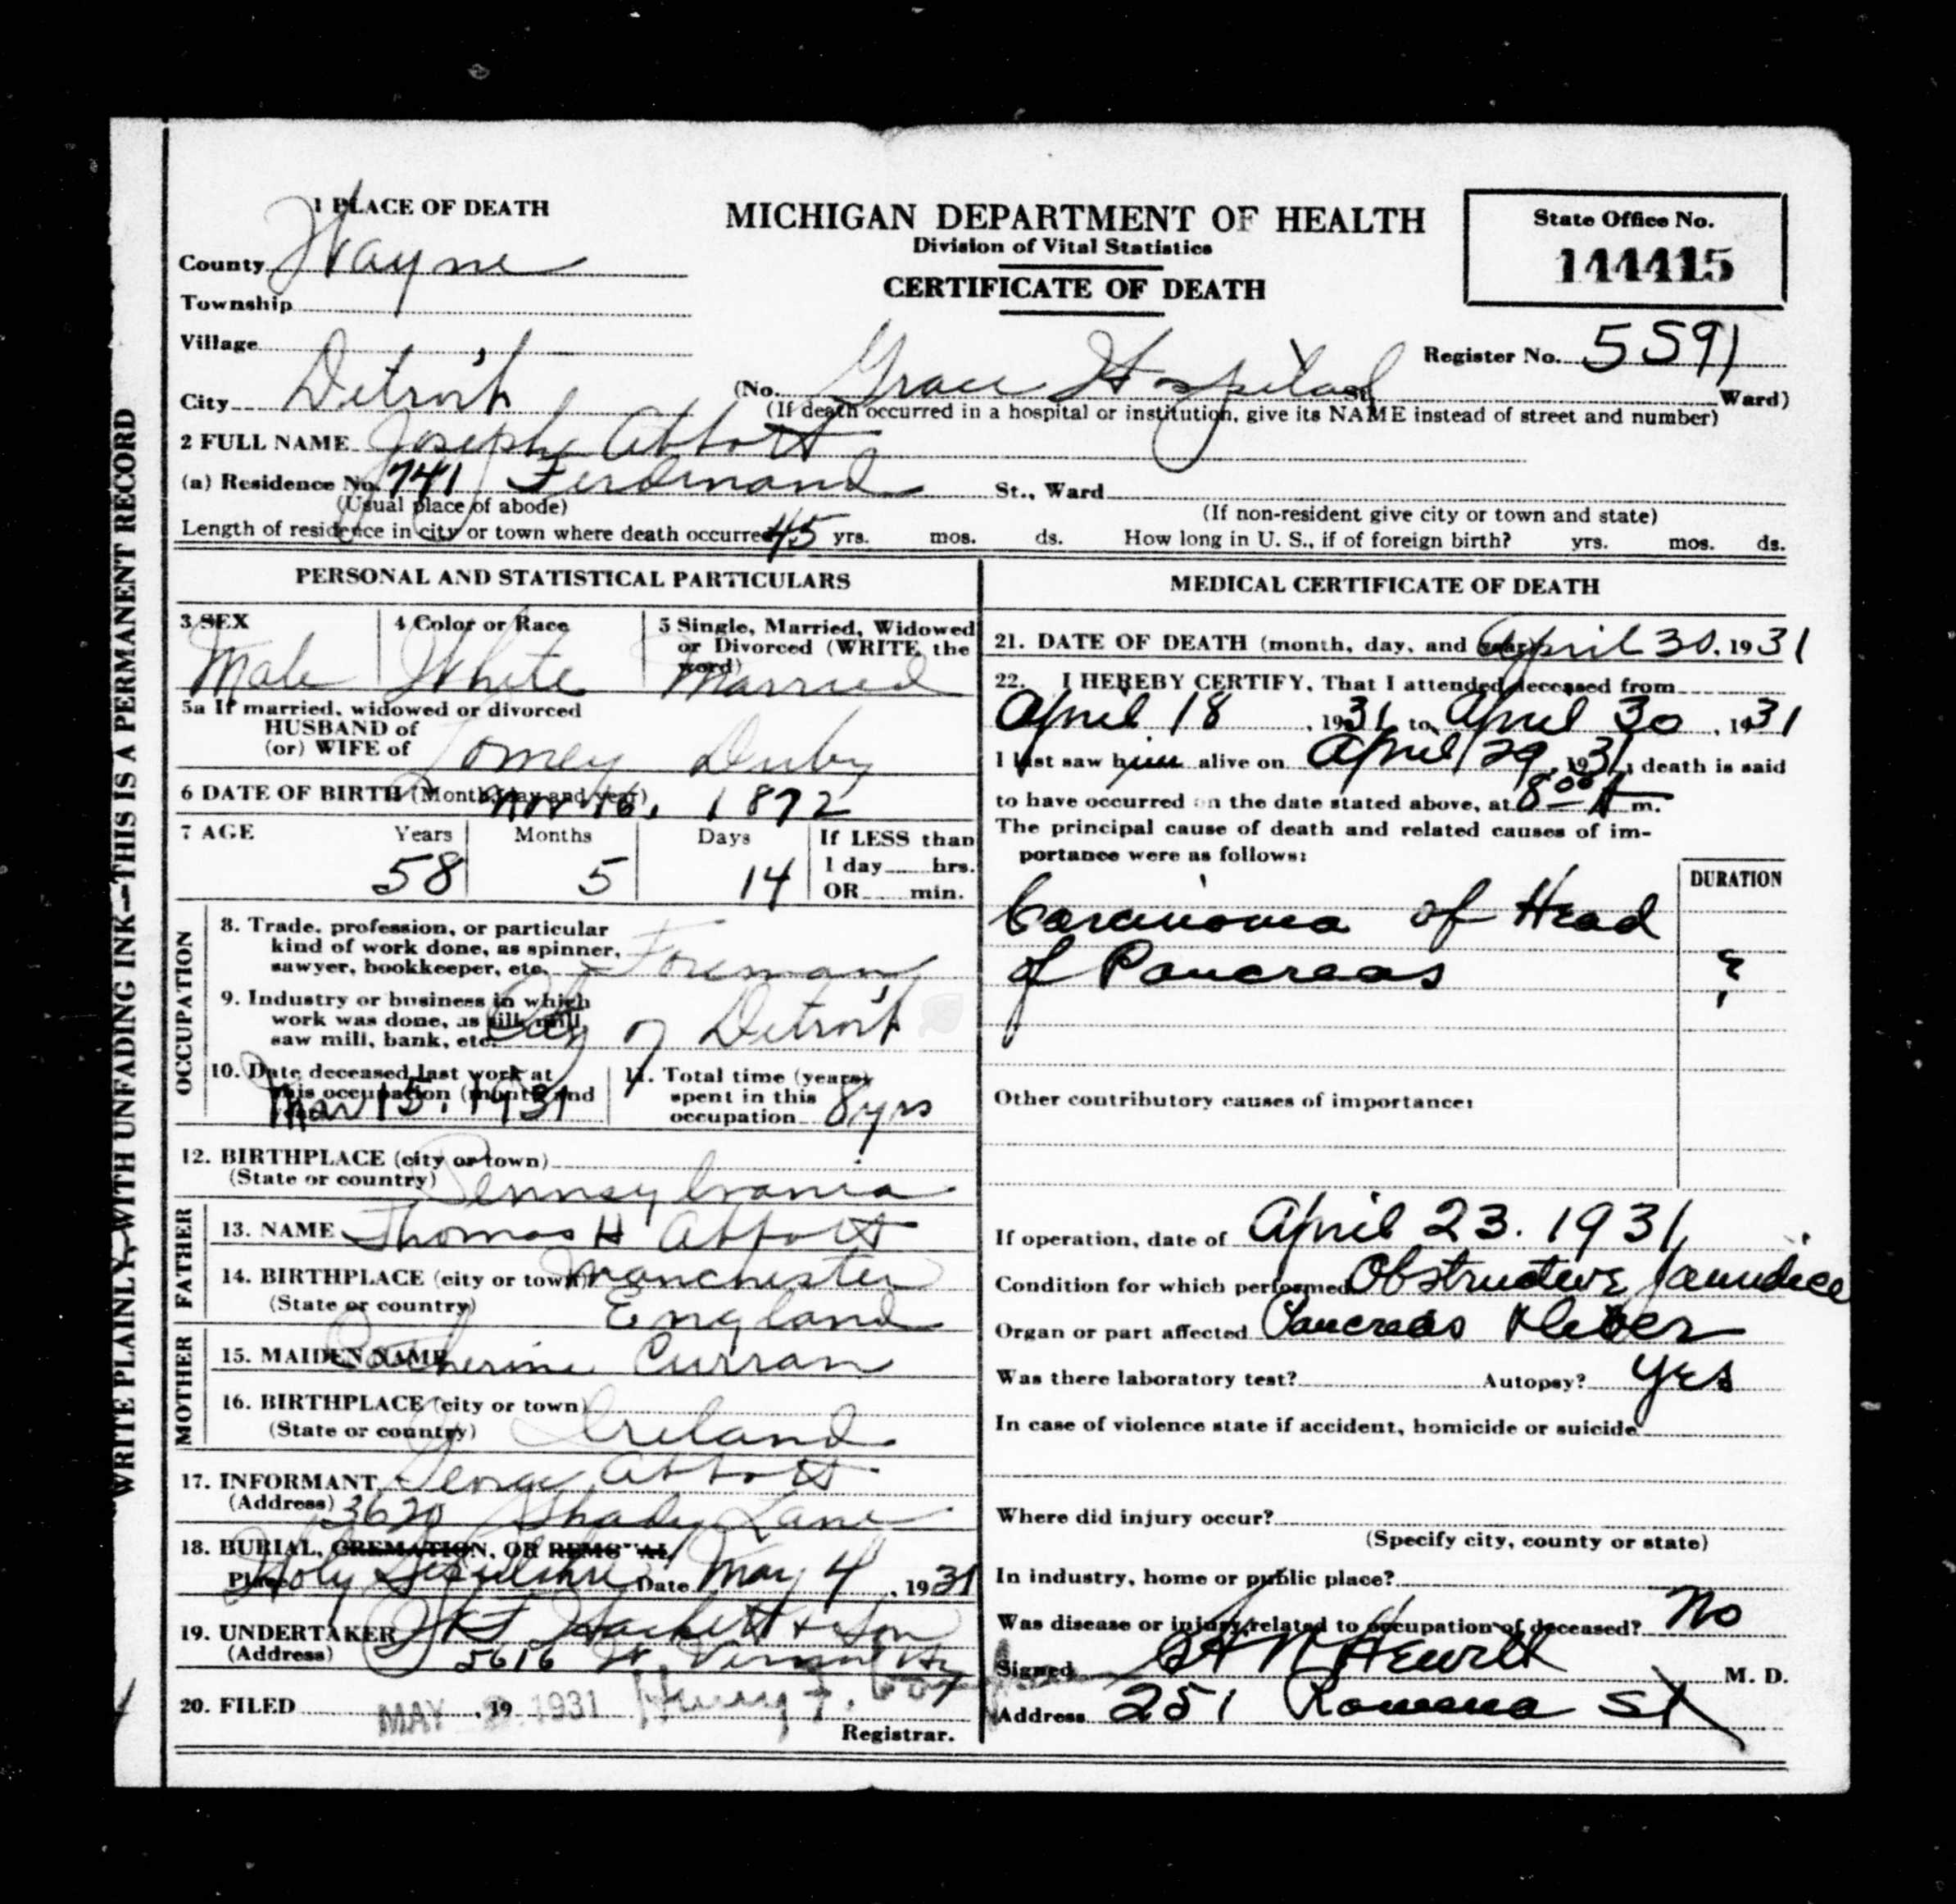 WRITE PLAINLY, WITH UNFADING INK—THIS IS A PERMANENT RECORD
1 PLACE OF DEATH
County Wayne
Township
Village
City Detroit
MICHIGAN DEPARTMENT OF HEALTH
Division of Vital Statistics
CERTIFICATE OF DEATH
State Office No.
144415
Register No. 5591
(No. Grace Hospital St. Ward)
(If death occurred in a hospital or institution, give its NAME instead of street and number)
2 FULL NAME Joseph Abbott
(a) Residence No. 741 Ferdinand St., Ward
(Usual place of abode) (If non-resident give city or town and state)
Length of residence in city or town where death occurred 45 yrs. mos. ds. How long in U. S., if of foreign birth? yrs. mos. ds.
PERSONAL AND STATISTICAL PARTICULARS
3 SEX 4 Color or Race 5 Single, Married, Widowed
or Divorced (WRITE the
word)
Male White Married
5a If married, widowed or divorced
HUSBAND of
(or) WIFE of Duby
6 DATE OF BIRTH (Month, day and year) Nov 16, 1872
7 AGE Years Months Days If LESS than
1 day hrs.
58 5 14 OR min.
OCCUPATION
8. Trade, profession, or particular
kind of work done, as spinner,
sawyer, bookkeeper, etc. Foreman
9. Industry or business in which
work was done, as silk mill,
saw mill, bank, etc. City of Detroit
10. Date deceased last work at
this occupation (month and
Mar 15, 1931
11. Total time (years)
spent in this
occupation 8 yrs
12. BIRTHPLACE (city or town)
(State or country) Pennsylvania
FATHER
13. NAME Thomas H Abbott
14. BIRTHPLACE (city or town) Manchester
(State or country) England
MOTHER
15. MAIDEN NAME Catherine Curran
16. BIRTHPLACE (city or town)
(State or country) Ireland
17. INFORMANT George Abbott
(Address) 3620 Shady Lane
18. BURIAL, CREMATION, OR REMOVAL
Place Holy Sepulchre Date May 4, 1931
19. UNDERTAKER Hackett & Son
(Address) 2616 W. Vernor Hy
20. FILED MAY 1931, 19 Henry F.
Registrar.
MEDICAL CERTIFICATE OF DEATH
21. DATE OF DEATH (month, day, and year) April 30, 1931
22. I HEREBY CERTIFY, That I attended deceased from
April 18, 1931, to April 30, 1931
I last saw him alive on April 29, 1931, death is said
to have occurred on the date stated above, at 8:00 A m.
The principal cause of death and related causes of im-
portance were as follows:
DURATION
Carcinoma of Head
of Pancreas ?
Other contributory causes of importance:
If operation, date of April 23. 1931
Condition for which performed Obstructive Jaundice
Organ or part affected Pancreas & Liver
Was there laboratory test? Autopsy? Yes
In case of violence state if accident, homicide or suicide
Where did injury occur?
(Specify city, county or state)
In industry, home or public place?
Was disease or injury related to occupation of deceased? No
Signed Hewitt M. D.
Address 251 Rowena St